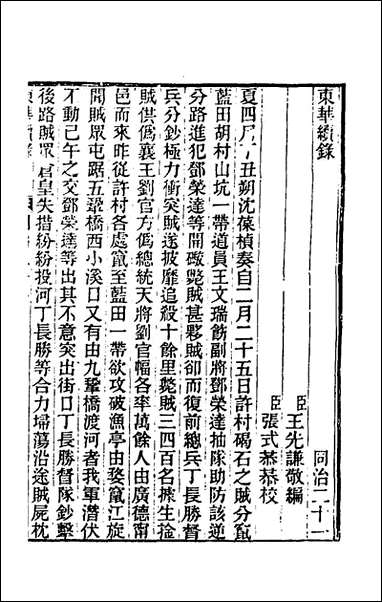 東華續錄
同治二十一
臣王先謙敬編
臣張式恭恭校
夏四月丁丑朔沈葆楨奏自二月二十五日許村碣石之賊分竄
藍田胡村山坑一帶道員王文瑞飭副將鄧榮達抽隊助防該逆
分路進犯鄧榮達等開礮斃賊甚夥賊卻而復前總兵丁長勝督
兵分鈔極力衝突賊遂披靡追殺十餘里斃賊三四百名擒生捡
賊供僞襄王劉官方僞總統天將劉官福各率萬餘人由廣德甯
邑而來昨從許村各處竄至藍田一帶欲攻破漁亭由婺竄江旋
聞賊眾屯踞五鞏橋西小溪口又有由九鞏橋渡河者我軍潛伏
不動已午之交鄧榮達等出其不意突出街口丁長勝督隊鈔擊
後路賊眾倉皇失措紛紛投河丁長勝等合力埽蕩沿途賊屍枕